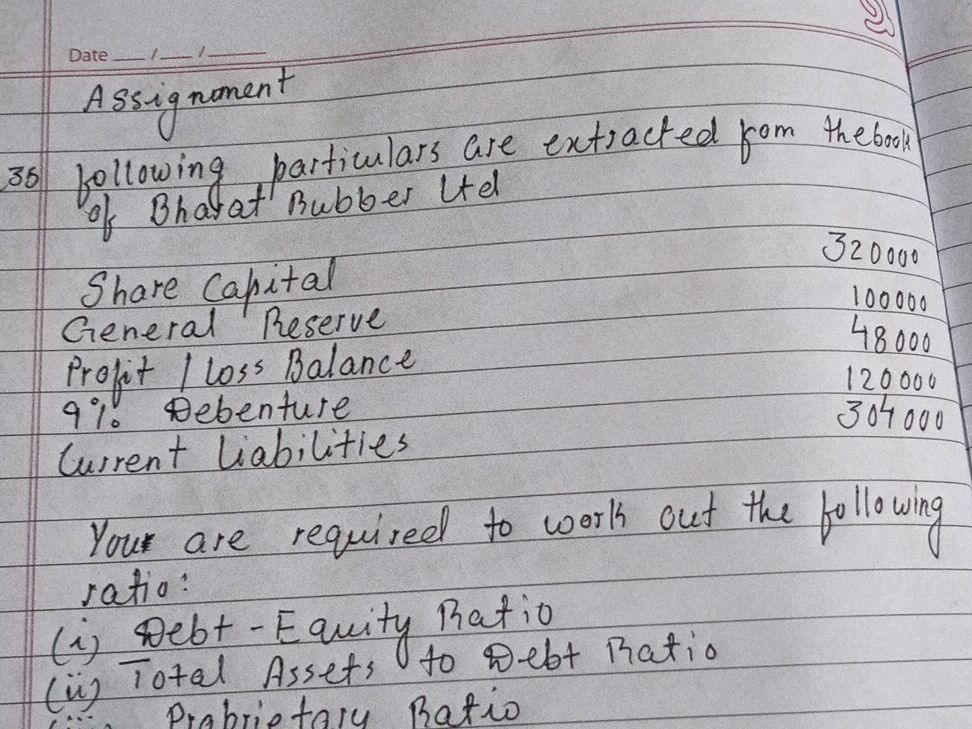 Date __/__/____
Assignment
35 following particulars are extracted from the book
of Bharat Rubber Ltd
Share Capital 320000
General Reserve 100000
Profit / Loss Balance 48000
9% Debenture 120000
Current Liabilities 304000
You are required to work out the following
ratio:
(i) Debt-Equity Ratio
(ii) Total Assets to Debt Ratio
(iii) Proprietary Ratio